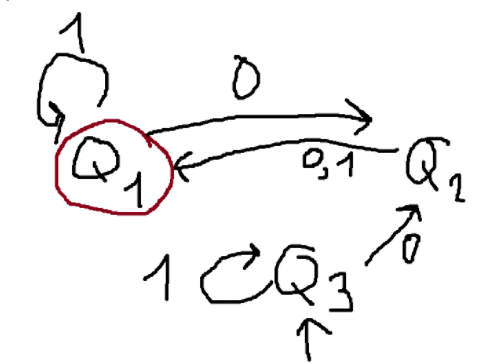 1
0
Q1
0,1
Q2
0
1
Q3